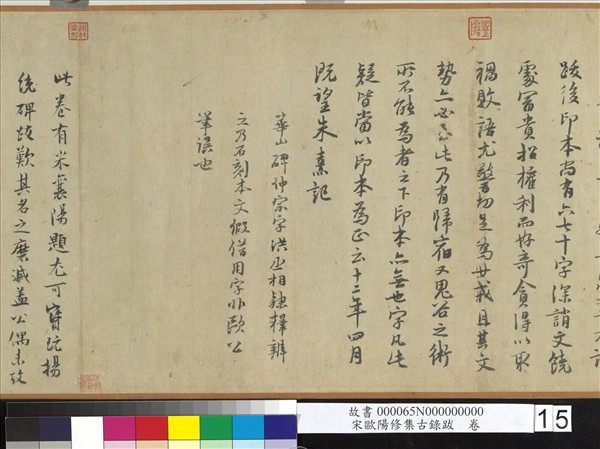 跋後印本尚有六七十字深誚文饒
處富貴招權利而好奇貪得以取
禍敗語尤警切足為世戒且其文
勢亦必至此乃有歸宿又鬼谷之術
所不能為者之下印本亦無也字凡此
疑皆當以印本為正云十二年四月
既望朱熹記
華山碑仲宗字洪丞相隸釋辨
之乃石刻本文假借用字非歐公
筆誤也
此卷有米襄陽題尤可寶玩揚
統碑跋歎其名之磨滅蓋公偶未攷
故書 000065N000000000
宋歐陽修集古錄跋 卷
15